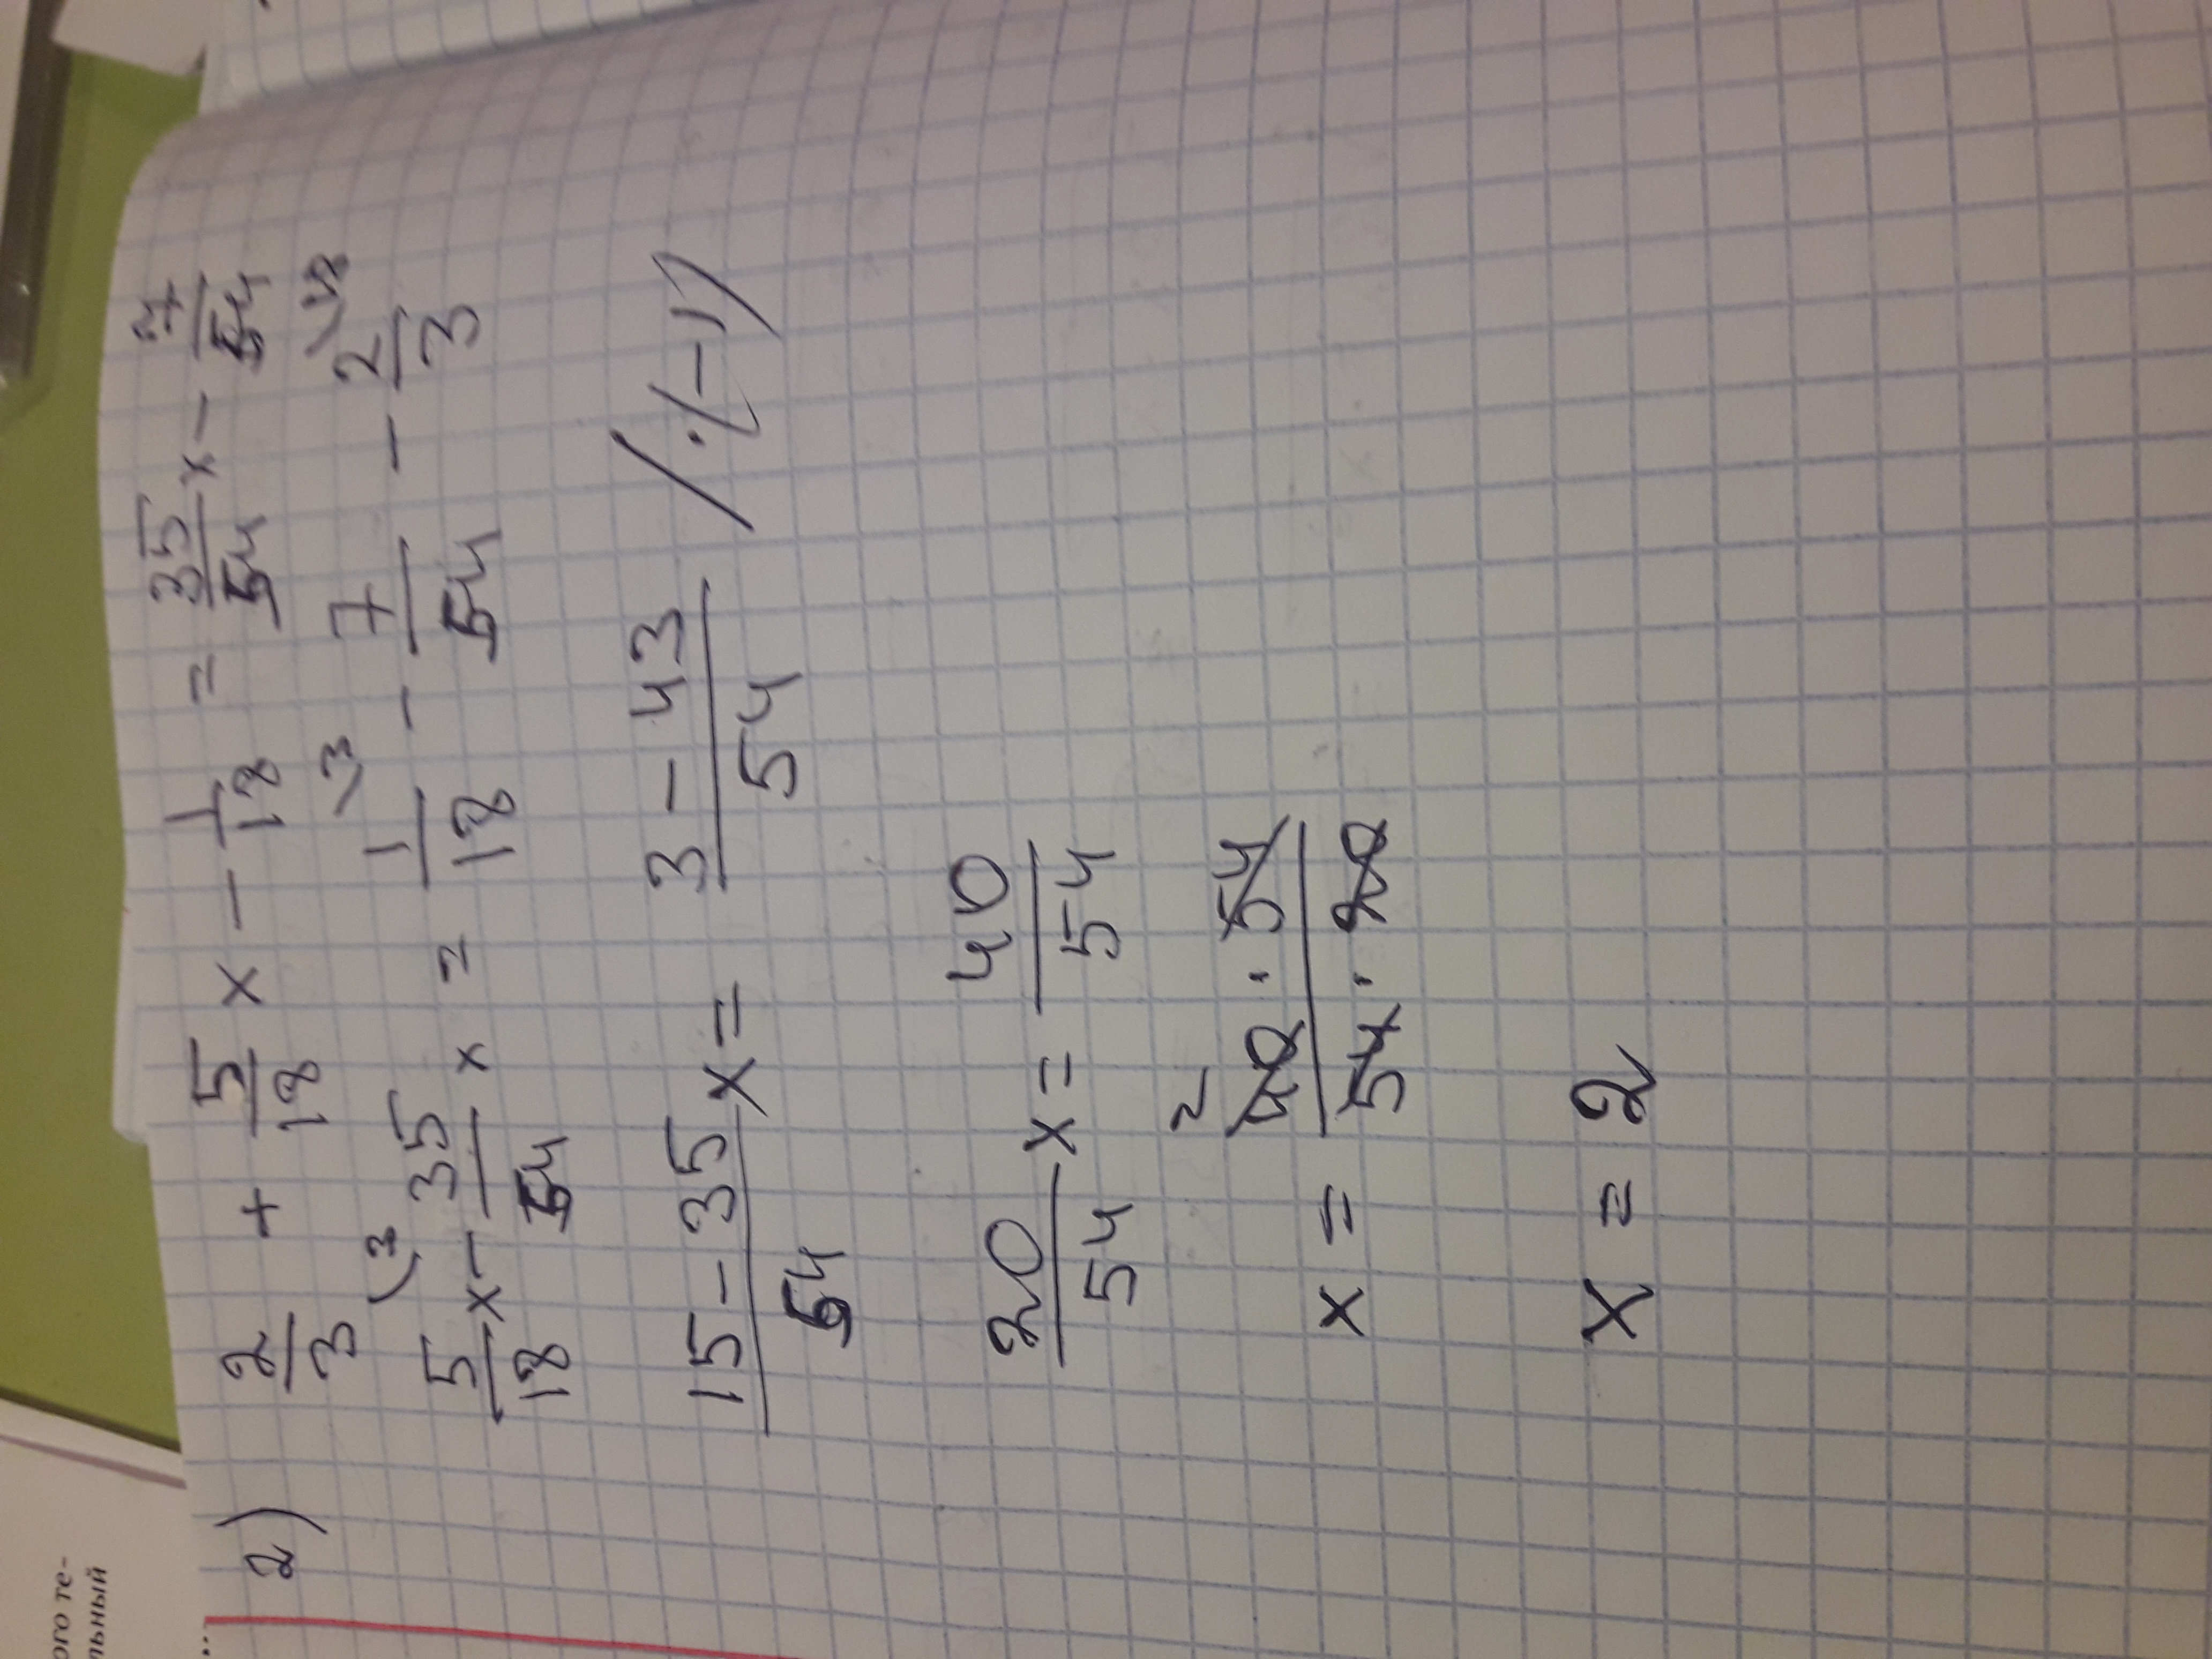 ого те-
льный
2) 2/3 + 5/18 x - 1/18 = 35/54 x - 7/54
5/18 \3 x - 35/54 x = 1/18 \3 - 7/54 - 2/3 \18
(15 - 35)/54 x = (3 - 43)/54 / :(-1)/
20/54 x = 40/54
x = (40 2 · 54)/(54 · 20)
x = 2